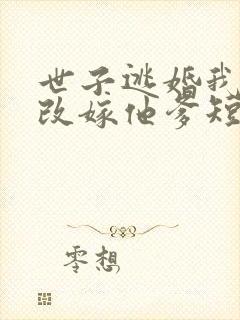 世子逃婚我
改嫁他爹短
零想